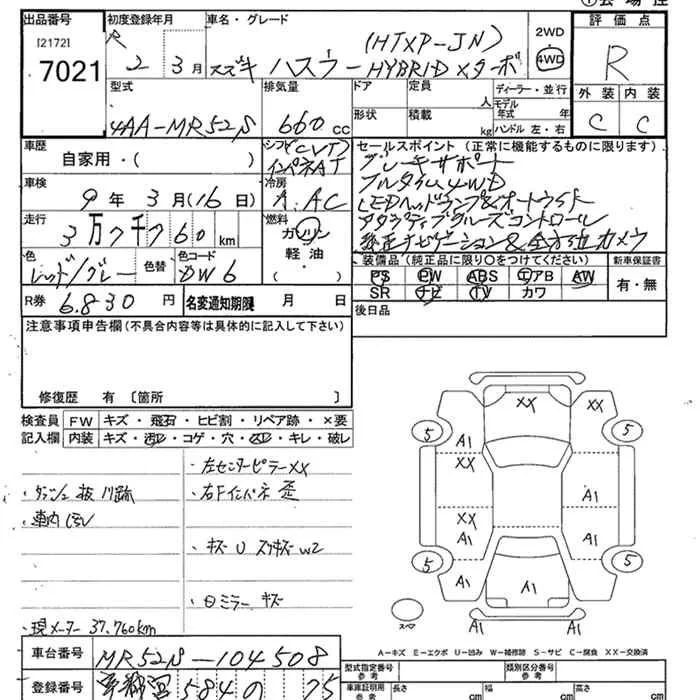 ①会場性
出品番号
[2172]
7021
初度登録年月
R 2 3月
車名・グレード
(HTXP-JN)
スズキ ハスラー HYBRID Xターボ
2WD
4WD
評価点
R
外装 内装
C C
型式
4AA-MR52S
排気量
660 cc
ドア
形状
定員
人
積載
kg
ディーラー・並行
モデル
年式 年
ハンドル 左・右
車歴
自家用・( )
シフト(CVT)
インパネAT
車検
9年 3月(16日)
冷房
A.AC
走行
3万7千760km
燃料
ガソリン
軽油
( )
色
レッド/グレー
色替
色コード
DW6
R券 6.830円
名変通知期限 月 日
セールスポイント(正常に機能するものに限ります)
ブレーキサポート
フルタイム4WD
LEDヘッドランプ&オートライト
アダプティブクルーズコントロール
純正ナビゲーション&全方位カメラ
装備品(純正品に限り○をつけてください)
PS PW ABS エアB AW
SR ナビ TV カワ
新車保証書
有・無
後日品
注意事項申告欄(不具合内容等は具体的に記入して下さい)
修復歴 有〔箇所 〕
検査員
記入欄
FW キズ・飛石・ヒビ割・リペア跡・×要
内装 キズ・汚レ・コゲ・穴・スレ・キレ・破レ
・左センターピラーXX
・右Fインパネ 歪
・キズ U スリキズ W2
・日ミラー キズ
・ダッシュ 抜
・車内
・現メーター 37,760km
XX XX
5 5
A1
XX
XX A1
A1
A1 A1
5 5
A1 A1
A1 A1
スペア
A-キズ E-エクボ U-凹み W-補修跡 S-サビ C-腐食 XX-交換済
車台番号 MR52S-104508
登録番号 宇都宮 584 の 75
型式指定番号
参考
類別区分番号
参考
車庫証明用
参考
長さ cm
幅 cm
高さ cm